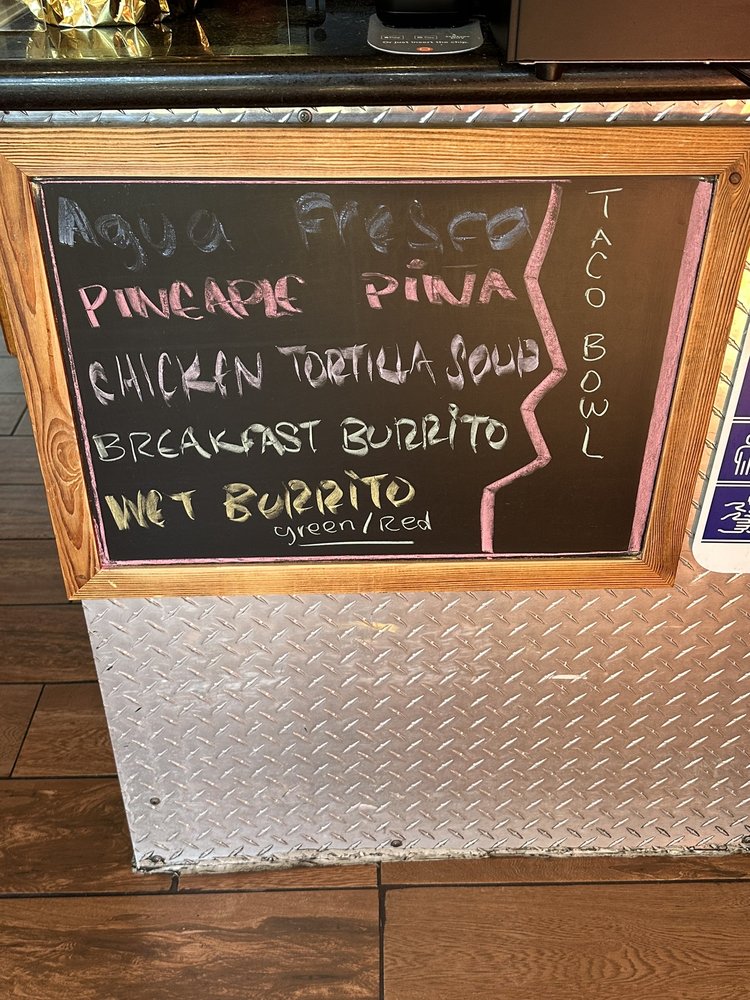 Or just insert the chip.
Agua Fresca
PINEAPLE PIÑA
CHICKEN TORTILLA SOUP
BREAKFAST BURRITO
WET BURRITO
green/Red
TACO BOWL